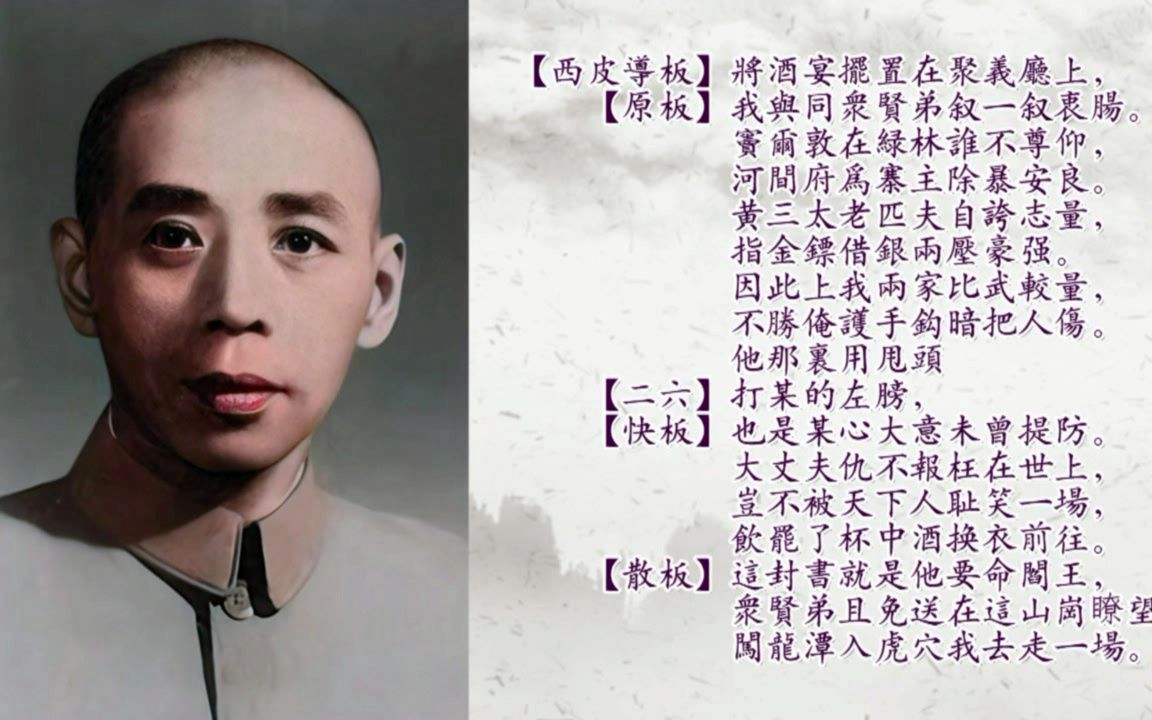 【西皮導板】將酒宴擺置在聚義廳上，
【原板】我與同衆賢弟叙一叙衷腸。
竇爾敦在緑林誰不尊仰，
河間府爲寨主除暴安良。
黄三太老匹夫自誇志量，
指金鏢借銀兩壓豪强。
因此上我兩家比武較量，
不勝俺護手鈎暗把人傷。
他那裏用甩頭
【二六】打某的左膀，
【快板】也是某心大意未曾提防。
大丈夫仇不報枉在世上，
豈不被天下人耻笑一場，
飲罷了杯中酒换衣前往。
【散板】這封書就是他要命閻王，
衆賢弟且免送在這山崗瞭望
闖龍潭入虎穴我去走一場。